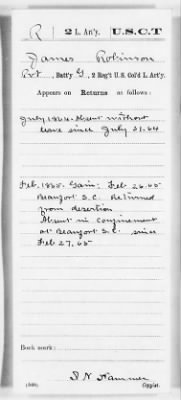 R 2 L. Art'y. U.S.C.T
James Robinson
Pvt, Batt'y G, 2 Reg't U.S. Col'd L. Art'y.
Appears on Returns as follows:
July, 1864. Absent without
leave since July 31.64
Feb. 1865. Gain; Feb 26.65
Beaufort S.C. Returned
from desertion
Absent in confinement
at Beaufort S.C. since
Feb 27, 65
Book mark:
Copyist.